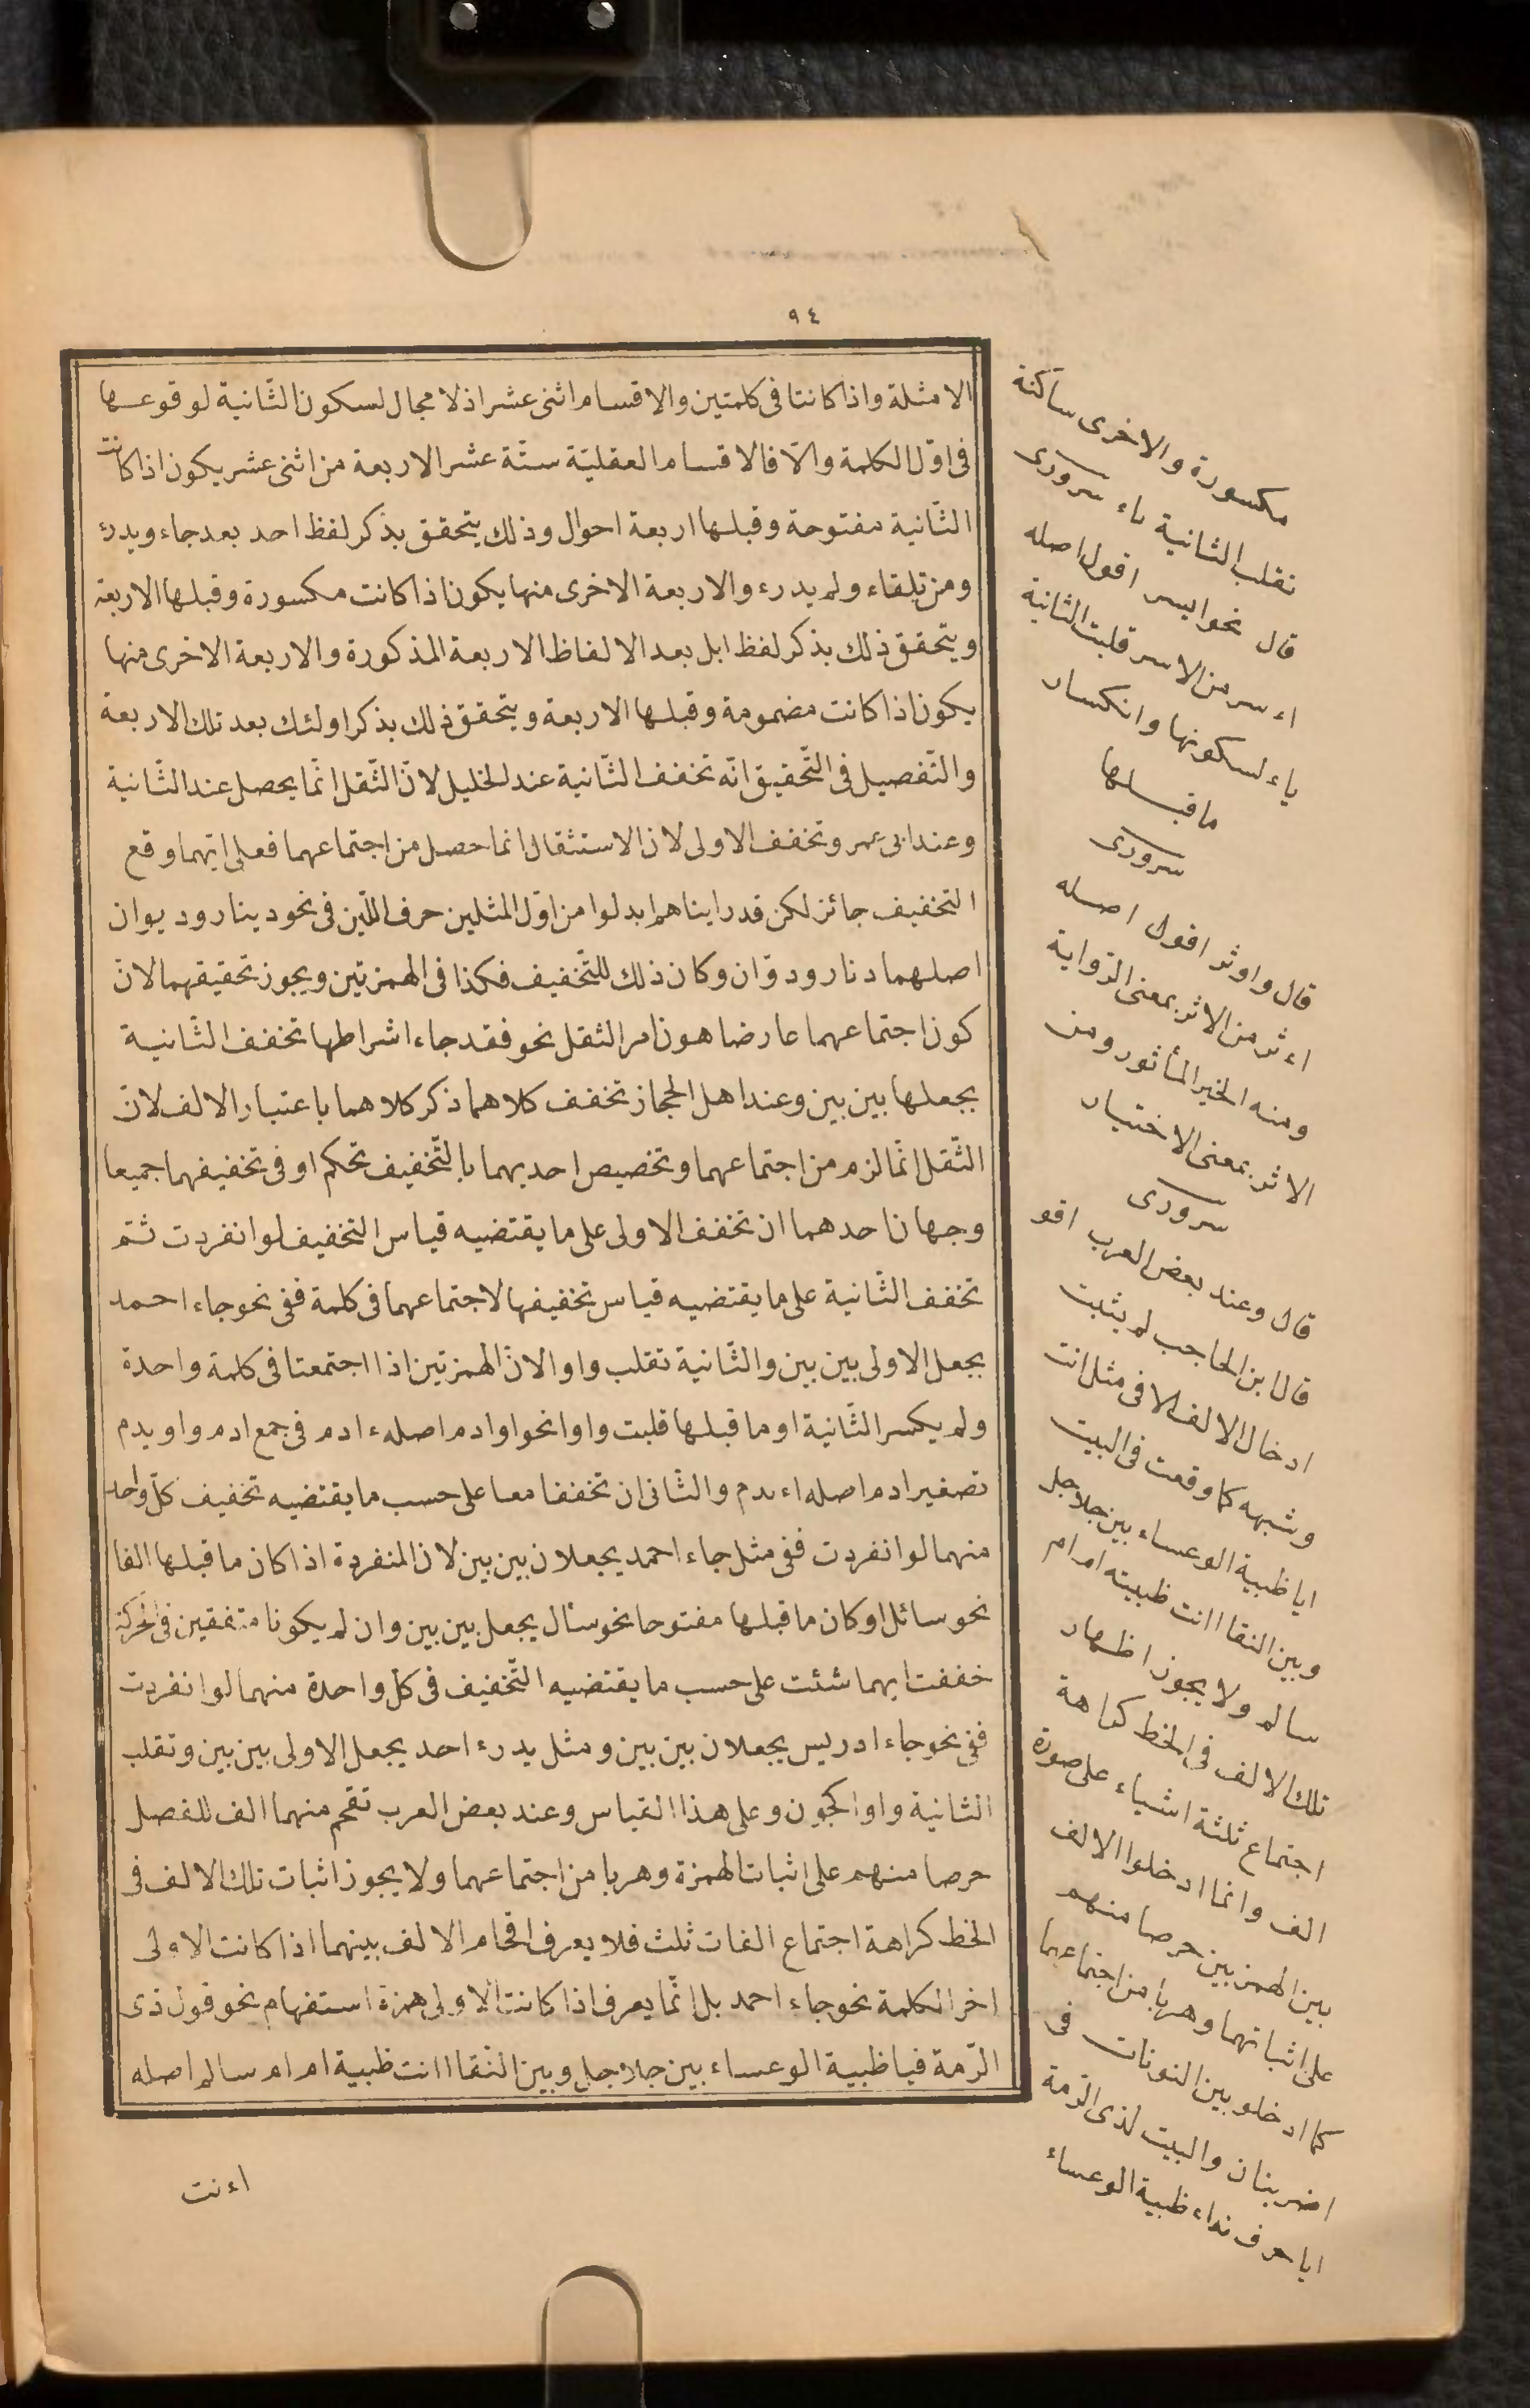 ٩٤
الامثلة واذا كانتا فى كلمتين والاقسام اثنى عشر اذ لا مجال لسكون الثّانية لوقوعها
فى اوّل الكلمة والّا فالاقسام العقليّة ستّة عشر الاربعة من اثنى عشر يكون اذا كانت
الثّانية مفتوحة وقبلها اربعة احوال وذلك يتحقق بذكر لفظ احد بعد جاء ويدرء
ومن تلقاء ولم يدرء والاربعة الاخرى منها يكون اذا كانت مكسورة وقبلها الاربعة
ويتحقق ذلك بذكر لفظ ابل بعد الالفاظ الاربعة المذكورة والاربعة الاخرى منها
يكون اذا كانت مضمومة وقبلها الاربعة ويتحقق ذلك بذكر اولئك بعد تلك الاربعة
والتّفصيل فى التّحقيق انّه تخفف الثّانية عند الخليل لانّ الثّقل انّما يحصل عند الثّانية
وعند ابى عمرو تخفف الاولى لان الاستثقال انما حصل من اجتماعهما فعلى ايّهما وقع
التخفيف جائز لكن قد راينا هم ابدلوا من اوّل المثلين حرف اللّين فى نحو دينار وديوان
اصلهما دنار ودوّان وكان ذلك للتّخفيف فكذا فى الهمزتين ويجوز تحقيقهما لانّ
كون اجتماعهما عارضا هون امر الثقل نحو فقد جاء اشراطها تخفف الثّانية
بجعلها بين بين وعند اهل الحجاز تخفف كلاهما ذكر كلاهما باعتبار الالف لانّ
الثّقل انّما لزم من اجتماعهما وتخصيص احديهما بالتّخفيف تحكم او فى تخفيفهما جميعا
وجهان احدهما ان تخفف الاولى على ما يقتضيه قياس التخفيف لو انفردت ثمّ
تخفف الثّانية على ما يقتضيه قياس تخفيفها لاجتماعهما فى كلمة ففى نحو جاء احمد
يجعل الاولى بين بين والثّانية تقلب واوا لانّ الهمزتين اذا اجتمعتا فى كلمة واحدة
ولم يكسر الثّانية او ما قبلها قلبت واوا نحو اوادم اصله ء ادم فى جمع ادم واويدم
تصغير ادم اصله اءيدم والثّانى ان تخففا معا على حسب ما يقتضيه تخفيف كلّ واحد
منهما لو انفردت ففى مثل جاء احمد يجعلان بين بين لان المنفردة اذا كان ما قبلها الفا
نحو سائل او كان ما قبلها مفتوحا نحو سئال يجعل بين بين وان لم يكونا متفقين فى الحركة
خففت ايهما شئت على حسب ما يقتضيه التّخفيف فى كلّ واحدة منهما لو انفردت
ففى نحو جاء ادريس يجعلان بين بين ومثل يدرء احد يجعل الاولى بين بين وتقلب
الثانية واوا كجون وعلى هذا القياس وعند بعض العرب تقحم منهما الف للفصل
حرصا منهم على اثبات الهمزة وهربا من اجتماعهما ولا يجوز اثبات تلك الالف فى
الخط كراهة اجتماع الفات ثلث فلا يعرف اقحام الالف بينهما اذا كانت الاولى
اخر الكلمة نحو جاء احمد بل انّما يعرف اذا كانت الاولى همزة استفهام نحو قول ذى
الرّمة فيا ظبية الوعساء بين جلاجل وبين النّقا اانت ظبية ام ام سالم اصله
اءنت
مكسورة والاخرى ساكنة
تقلب الثانية ياء سرورى
قال نحو ايسر اقول اصله
اءسر من الاسر قلبت الثانية
ياء لسكونها وانكسار
ما قبلها
سرورى
قال واوثر اقول اصله
اءثر من الاثر بمعنى الرّواية
ومنه الخبر المأثور ومن
الاثر بمعنى الاختيار
سرورى
قال وعند بعض العرب اقو
قال ابن الحاجب لم يثبت
ادخال الالف الا فى مثل اانت
وشبهه كما وقعت فى البيت
ايا ظبية الوعساء بين جلاجل
وبين النقا اانت ظبيته ام ام
سالم ولا يجوز اظهار
تلك الالف فى الخط كراهة
اجتماع ثلثة اشياء على صورة
الف وانما ادخلوا الالف
بين الهمزتين حرصا منهم
على اثباتهما وهربا من اجتماعهما
كما ادخلو بين النونات فى
اضربنان والبيت لذى الرّمة
ايا حرف نداء ظبية الوعساء